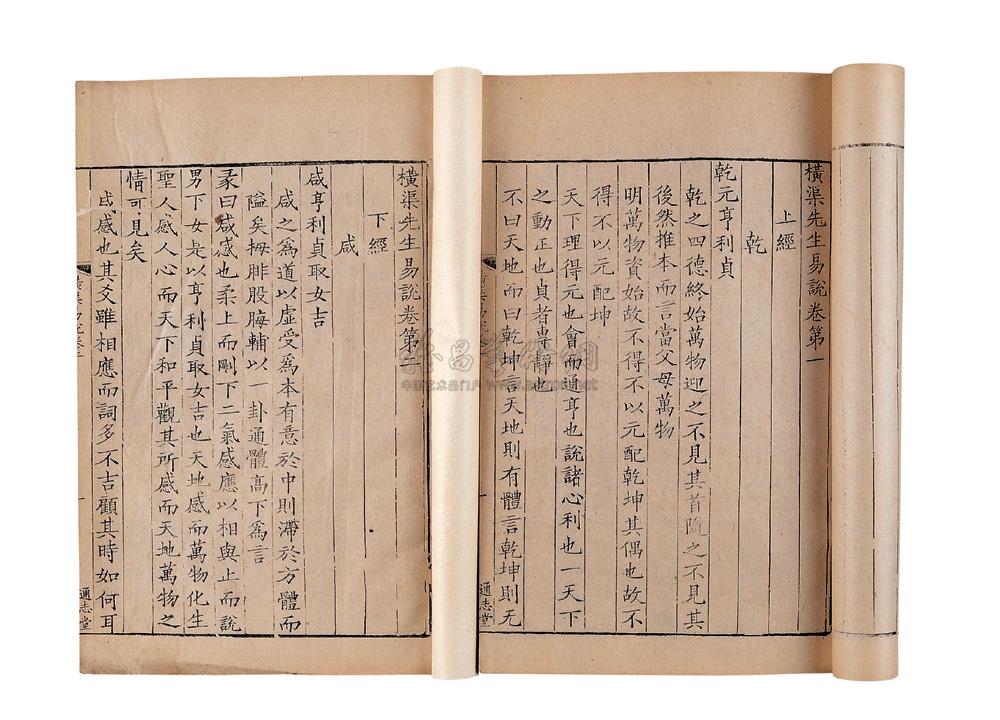 橫渠先生易說卷第一
上經
乾
乾元亨利貞
乾之四德終始萬物迎之不見其首隨之不見其
後然推本而言當父母萬物
明萬物資始故不得不以元配乾坤其偶也故不
得不以元配坤
天下理得元也會而通亨也說諸心利也一天下
之動正也貞者專靜也
不曰天地而曰乾坤言天地則有體言乾坤則无
橫渠先生易說卷第二
下經
咸
咸亨利貞取女吉
咸之爲道以虛受爲本有意於中則滯於方體而
隘矣拇腓股脢輔以一卦通體高下爲言
彖曰咸感也柔上而剛下二氣感應以相與止而說
男下女是以亨利貞取女吉也天地感而萬物化生
聖人感人心而天下和平觀其所感而天地萬物之
情可見矣
咸感也其爻雖相應而詞多不吉顧其時如何耳
通志堂